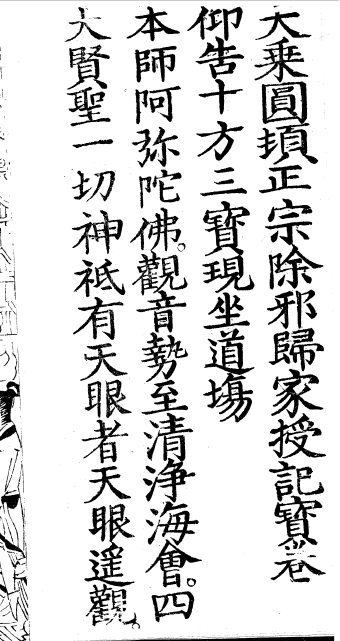 大乗圓頓正宗除邪歸家授記寳卷
仰告十方三寳現坐道塲
本師阿弥陀佛。觀音勢至清淨海會。四
大賢聖一切神祇有天眼者天眼遥觀。